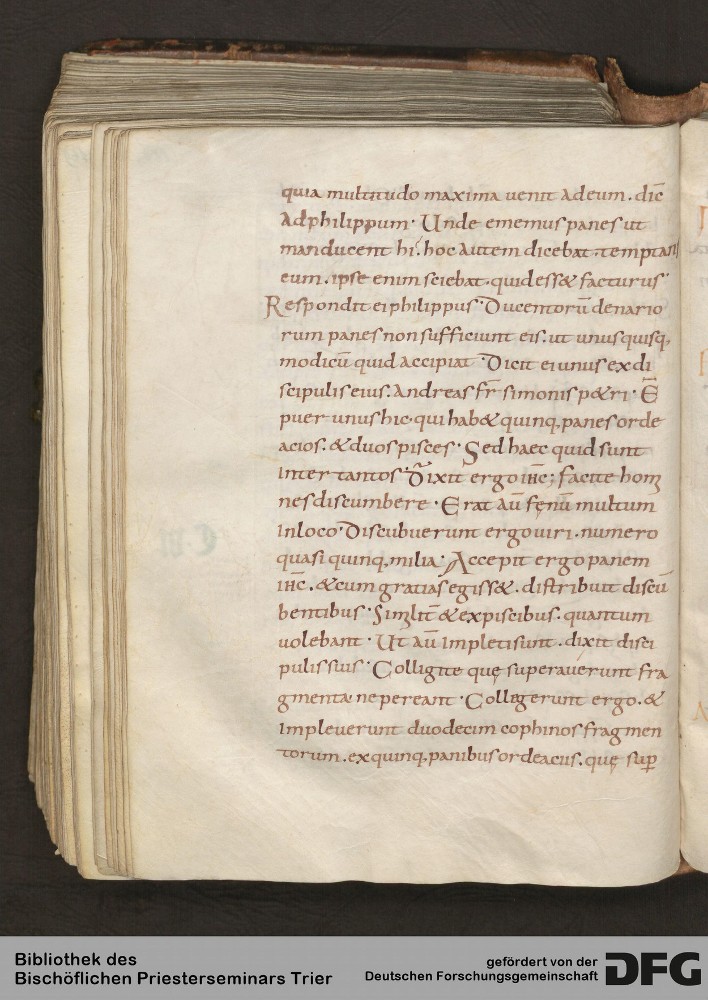 quia multitudo maxima uenit adeum. dic̄
adphilippum· Unde ememus panes ut
manducent hi. hoc autem dicebat. temptans
eum. ipse enim sciebat. quid ess& facturus·
Respondit ei philippus· Ducentorū denario
rum panes non sufficiunt eis. ut unusquisq;
modicū quid accipiat· Dicit ei unus ex di
scipulis eius. Andreas fr̄ simonis p&ri· Ē
puer unus hic. qui hab& quinq, panes orde
acios. & duos pisces· Sed haec quid sunt
inter tantos· Dixit ergo ihc̄; facite homi
nes discumbere· Erat aū fęnū multum
inloco· Discubuerunt ergo uiri. numero
quasi quinq, milia· Accepit ergo panem
ihc̄. & cum gratias egiss&. distribuit discū
bentibus· Similit̄ & expiscibus. quantum
uolebant· Ut aū impleti sunt. dixit disci
pulis suis· Colligite quę superauerunt fra
gmenta ne pereant· Collegerunt ergo. &
impleuerunt duodecim cophinos fragmen
torum. ex quinq, panibus ordeaciis. quę sup̄
Bibliothek des
Bischöflichen Priesterseminars Trier
gefördert von der
Deutschen Forschungsgemeinschaft
DFG